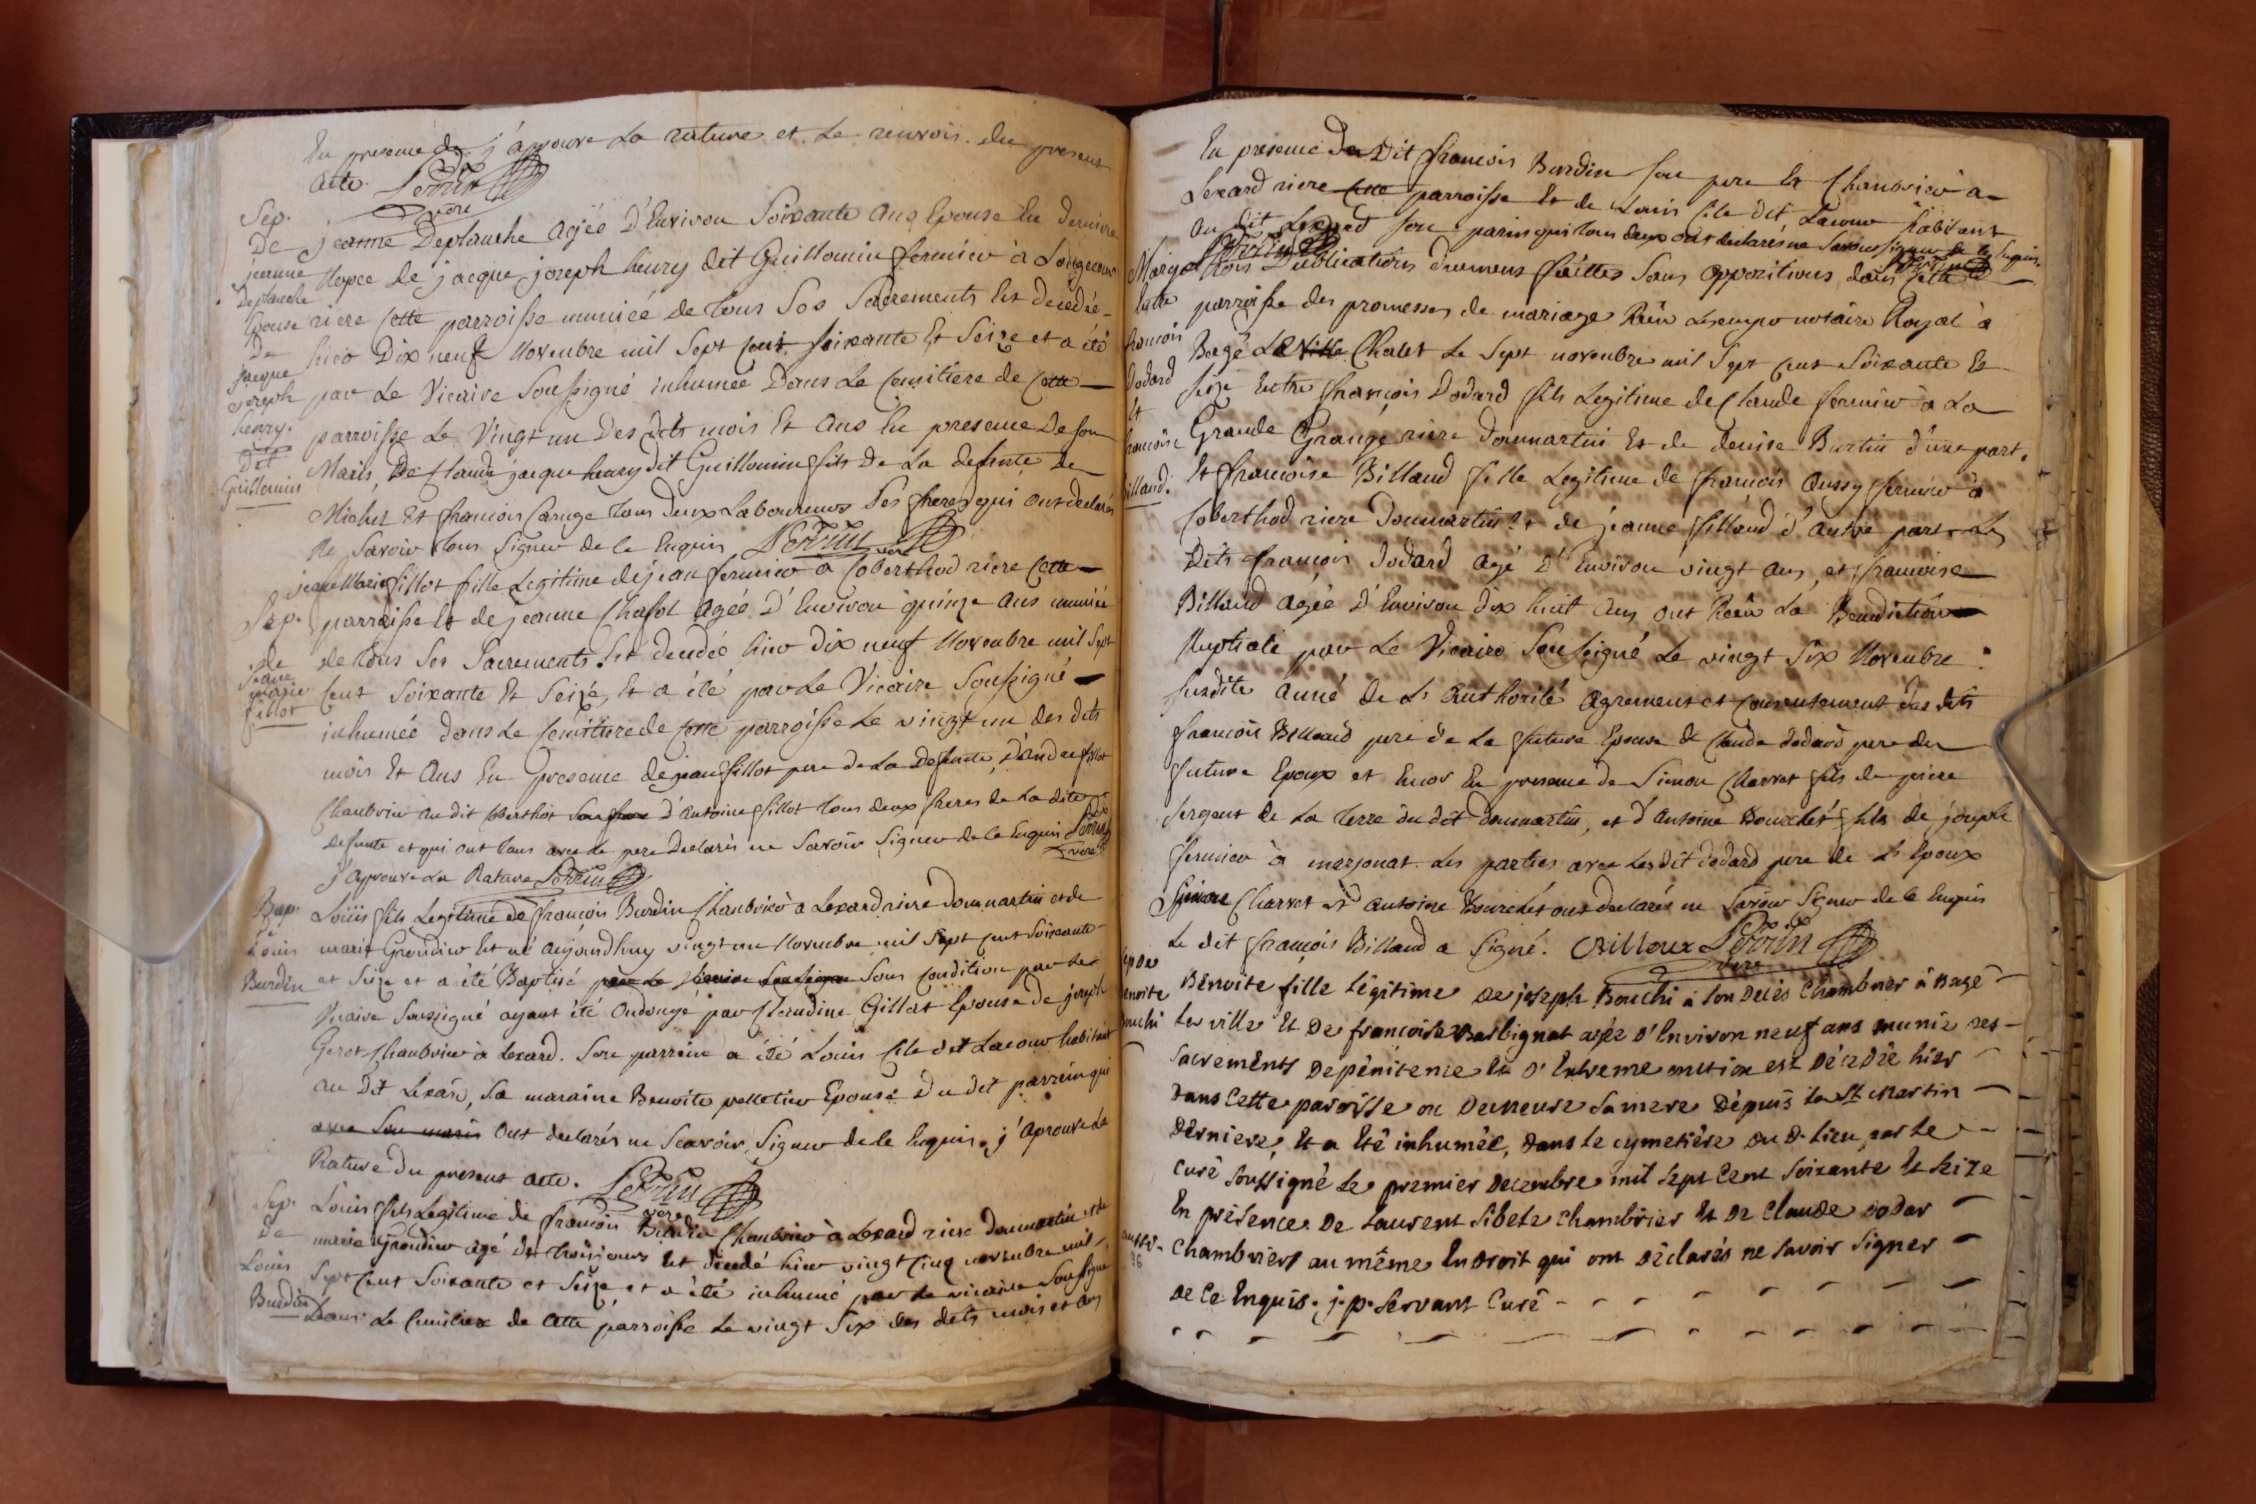 En presence de j'approuve La rature et Le renvois du present
acte. Perrin vicre
Sep.
De
jeanne
Deplanche
Epouse
De
jacque
joseph
henry.
Dit
Guillomin
jeanne Deplanche agée D'Environ Soixante ans Epouse En derniere
Nopce de jacque joseph henry dit Guillomin fermier à
riere Cette parroisse muniée de tous Ses Sacrements Est decedée
hier Dix neuf Novembre mil Sept Cent Soixante Et Seize et a été
par Le Vicaire Soussigné inhumée Dans Le Cemitiere de Cette
parroisse Le Vingt un Des dits mois Et ans En presence De son
Maris, De Claude jacque henry dit Guillomin fils De La defunte de
Michel Et francois Caruge tous deux Laboureurs Ses freres qui ont declarés
Ne Savoir tous Signer de ce Enquis Perrin vicre
Sep.
de
jeanne
marie
fillot
jeanne Marie fillot fille Legitime de jean fermier a Coberthod riere Cette
parroisse Et de jeanne Chafol agée D'Environ quinze ans muniée
de tous Ses Sacrements Est decedée hier dix neuf Novembre mil Sept
Cent Soixante Et Seize, Et a été par Le Vicaire Soussigné
inhumée dans Le Cemitiere de Cette parroisse Le vingt un des dits
mois Et ans En presence de jean fillot pere de La Defunte, d'andre fillot
Chambrier au dit Coberthot son frere d'antoine fillot tous deux freres de La dite
defunte et qui ont tous avec Le pere Declarés ne Savoir Signer de ce Enquis Perrin vicre
j'approuve La Rature Perrin
Bap.
de
Louis
Burdin
Loüis fils Legitime de francois Burdin Chambrier a Lexard riere Dommartin et de
marie Grondier Est né aujourdhuy vingt un Novembre mil Sept Cent Soixante
et Seize et a été Baptisé par Le Vicaire Soussigné Sous Condition par Le
Vicaire Soussigné ayant été Ondoyé par Claudine Gillot Epouse de joseph
Gerot Chambrier à Lexard. Son parrein a été Louis Cile dit Lacour habitant
au Dit Lexard, Sa maraine Benoite pelletier Epouse Du dit parrein qui
avec Son maris Ont declarés ne Scavoir Signer de ce Enquis. j'aprouve La
Rature Du present acte. Perrin vicre
Sep.
de
Louis
Burdin
Louis fils Legitime de francois Burdin Chambrier à Lexard riere dommartin et de
marie Grondier agé de trois jours Est decedé hier vingt Cinq novembre mil
Sept Cent Soixante et Seize et a été inhumé par Le vicaire Soussigné
Dans Le Cemitiere de Cette parroisse Le vingt Six des dits mois et ans
En presence du Dit francois Burdin son pere Et Chambrier a
Lexard riere Cette parroisse Et de Louis Cile dit Lacour habitant
au dit Lexard son parin qui tous deux ont declarés ne Savoir Signer de ce Enquis.
Perrin
Perrin
Mariage
Entre
francois
Dodard
Et
francoise
Billaud.
trois Publications duement faittes Sans oppositions dans Cette
parroisse des promesses de mariage Reçu notaire Royal à
Bagé La Ville Chalet Le Sept novembre mil Sept Cent Soixante Et
Seize Entre françois Dodard fils Legitime de Claude fermier à La
Grande Grange riere Dommartin Et de denise Burtin d'une part.
Et francoise Billaud fille Legitime de francois aussy fermier à
Coberthod riere Dommartin Et de jeanne fillaud d'autre part Les
Dits françois Dodard agé D'Environ vingt ans, et francoise
Billaud agée D'Environ Dix huit ans ont Recu La Benediction
Nuptiale par Le Vicaire Soussigné Le vingt Six Novembre
Susdite année de L'authorité agrement et Consentement des dits
francois Billaud pere de La future Epouse de Claude dodard pere du
future Epoux et Encor En presence de Simon Charvet fils de pierre
sergent de La terre du dit dommartin, et d'antoine Bouchés fils de joseph
fermier à marjonat. Les parties avec Les dit dodard pere de L'Epoux
Simon Charvet et antoine Bourchés ont declarés ne Savoir Signer de ce Enquis
Le dit françois Billaud a Signé. Perrin vicre
Benoite
Bouchi
Benoite fille légitime de joseph Bouchi à son décès Chambrier à Bagé
la ville et de françoise Barbignat agée d'Environ neuf ans munie des
sacrements de pénitence et d'Extreme onction est décédée hier
dans Cette paroisse ou demeure sa mere depuis la St Martin
dernière, Et a Eté inhumée, dans le cymetière du d. lieu par le
curé soussigné le premier décembre mil sept Cent soixante Et seize
En présence de Laurent Sibelz chambrier Et de Claude dodar
Chambriers au même Endroit qui ont déclarés ne savoir signer
de ce Enquis. j. p. servant Curé